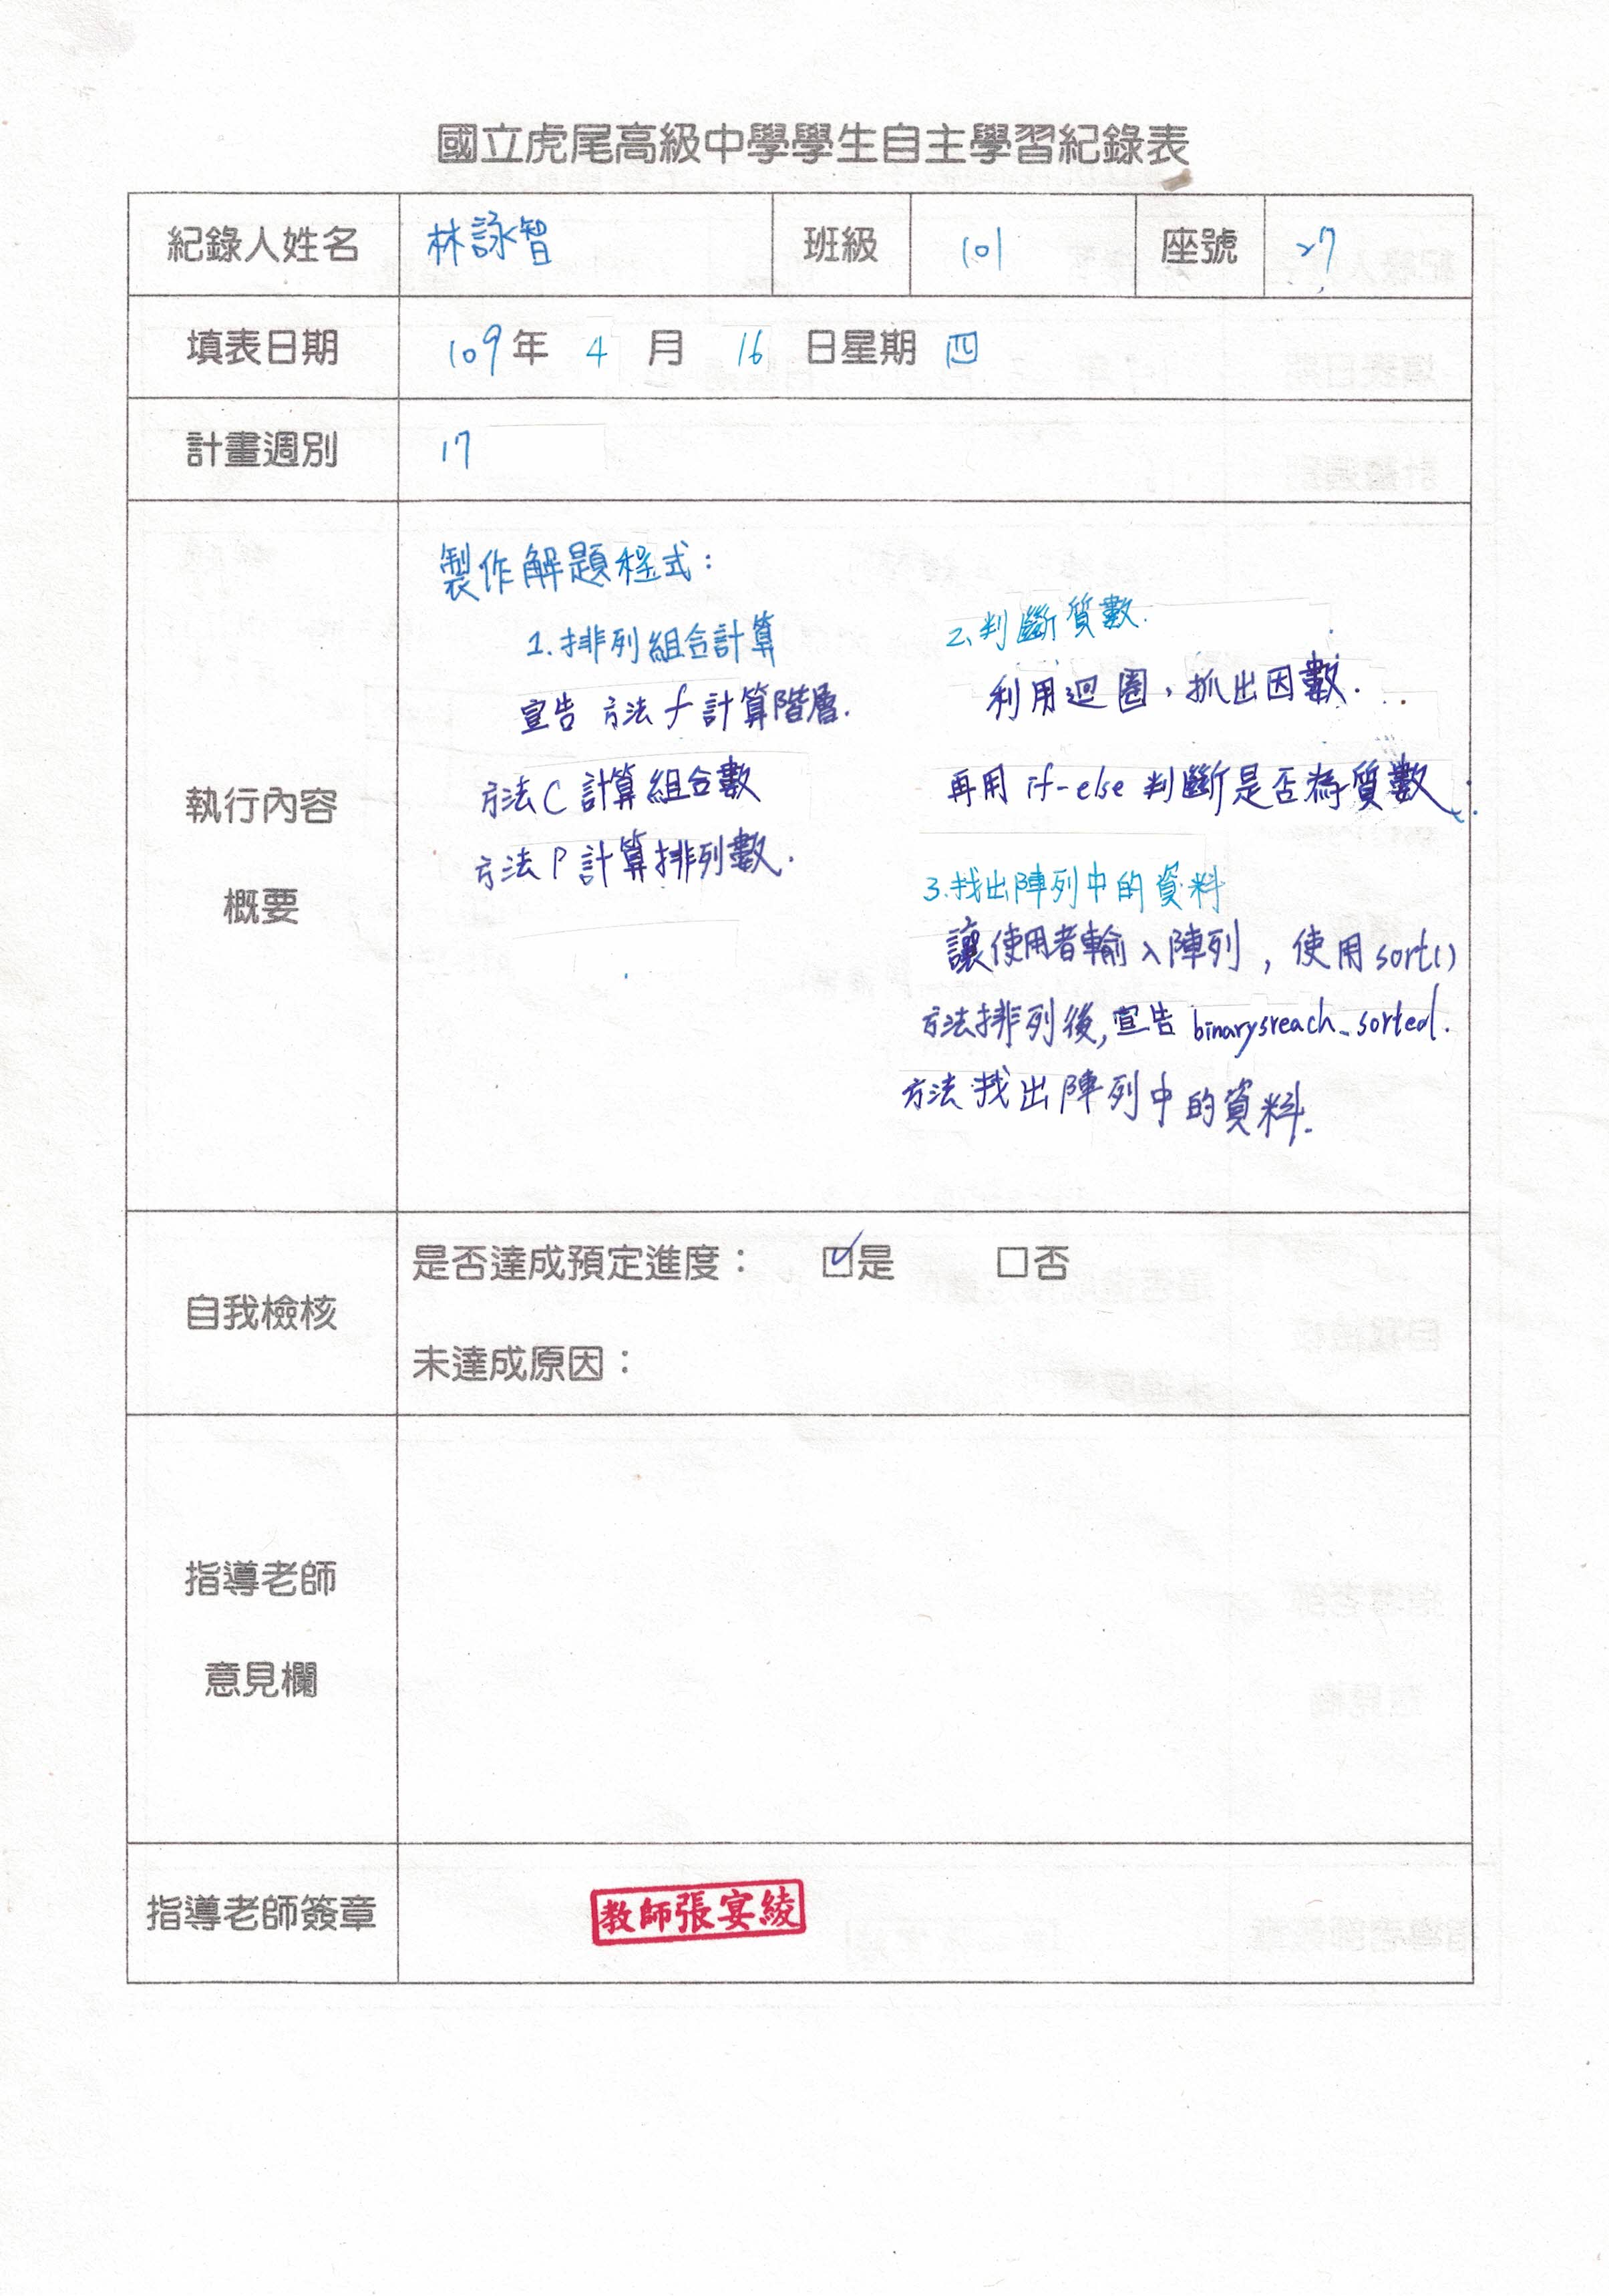 國立虎尾高級中學學生自主學習紀錄表
紀錄人姓名 林詠智 班級 101 座號 27
填表日期 109年 4 月 16 日星期 四
計畫週別 17
執行內容
概要
製作解題程式：
1.排列組合計算
宣告 方法 f 計算階層.
方法C 計算組合數
方法 P 計算排列數.
2.判斷質數.
利用迴圈，抓出因數.
再用 if-else 判斷是否為質數.
3.找出陣列中的資料
讓使用者輸入陣列，使用sort()
方法排列後,宣告 binarysreach_sorted.
方法 找出陣列中的資料.
自我檢核
是否達成預定進度： ☑是 □否
未達成原因：
指導老師
意見欄
指導老師簽章 教師張宴綾